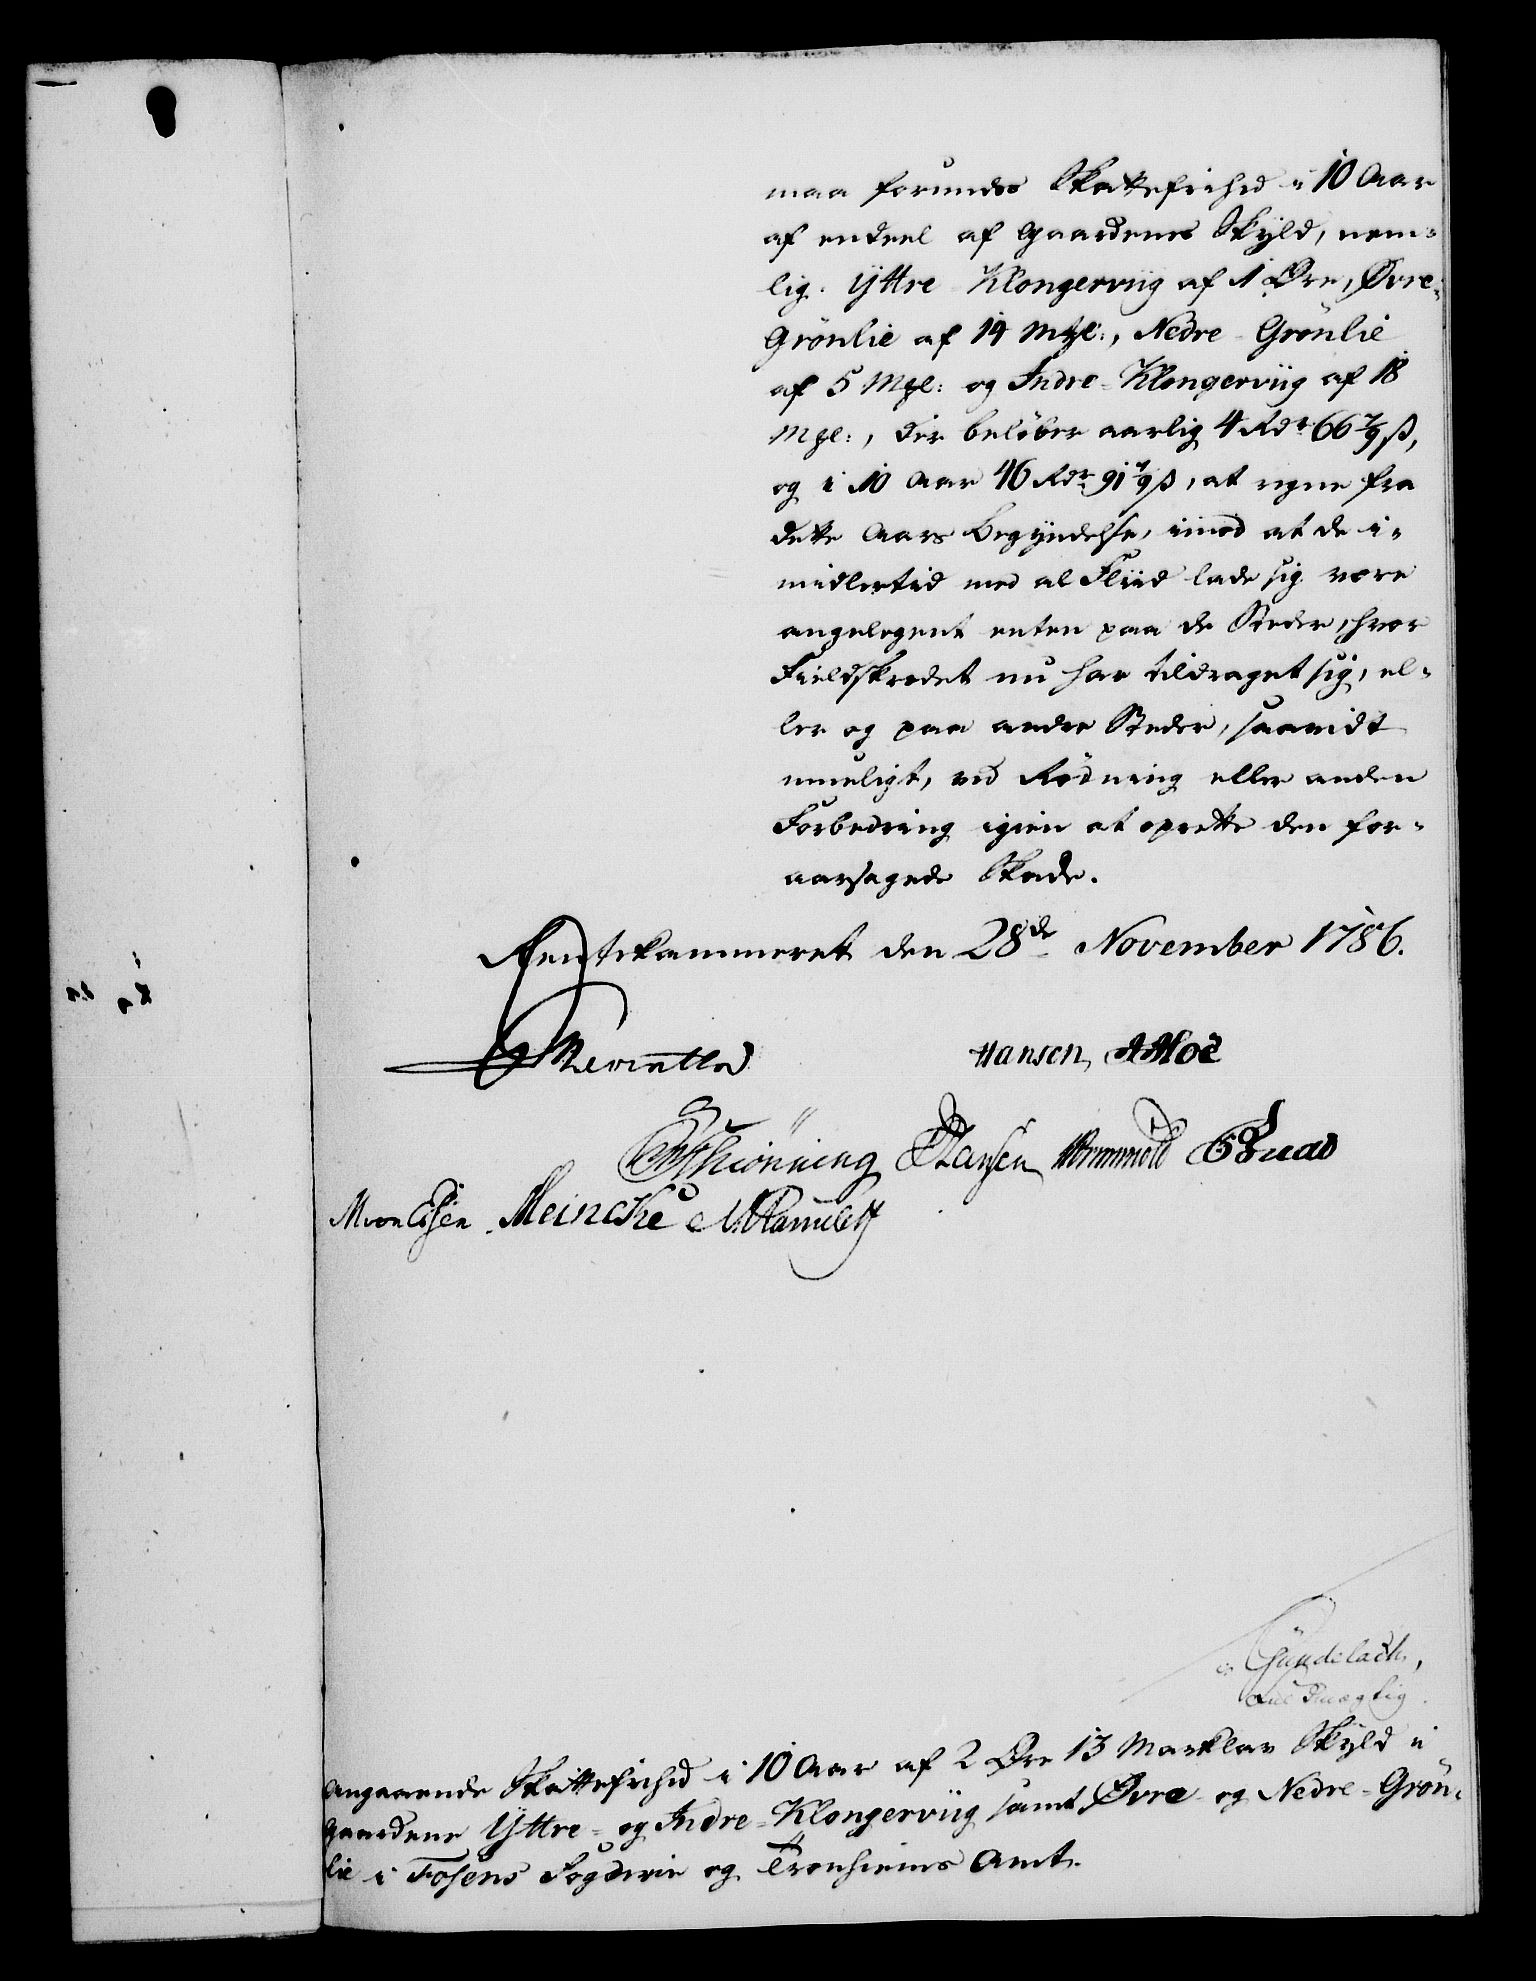 maa forundes Skattefrihed i 10 Aar
af endeel af Gaardenes Skyld, nem-
lig. Yttre Klongerviig af 1 Øre, Øvre-
Grönlie af 14 Mkl:, Nedre-Grönlie
af 5 Mkl: og Indre-Klongerviig af 18
Mkl:, der beløber aarlig 4 Rdr 66 7/9 ß,
og i 10 Aar 46 Rdr 91 7/9 ß, at regne fra
dette Aars Begyndelse, imod at de i-
midlertid med al Fliid lade sig være
angelegent enten paa de Steder, hvor
Fieldskredet nu har tildraget sig, el-
ler og paa andre Steder, saavidt
mueligt, ved Rödning eller anden
Forbedring igien at oprette den for-
aarsagede Skade.
Rentekammeret den 28de November 1786.
Reventlow
Hansen,
Schiönning Hansen
M von Essen. Meincke
Gundelach,
Fuldmægtig.
Angaaende Skattefrihed i 10 Aar af 2 Øre 13 Marklav Skyld i
Gaardene Yttre- og Indre-Klongerviig samt Øvre- og Nedre-Grön-
lie i Fosens Fogderie og Tronhiems Amt.